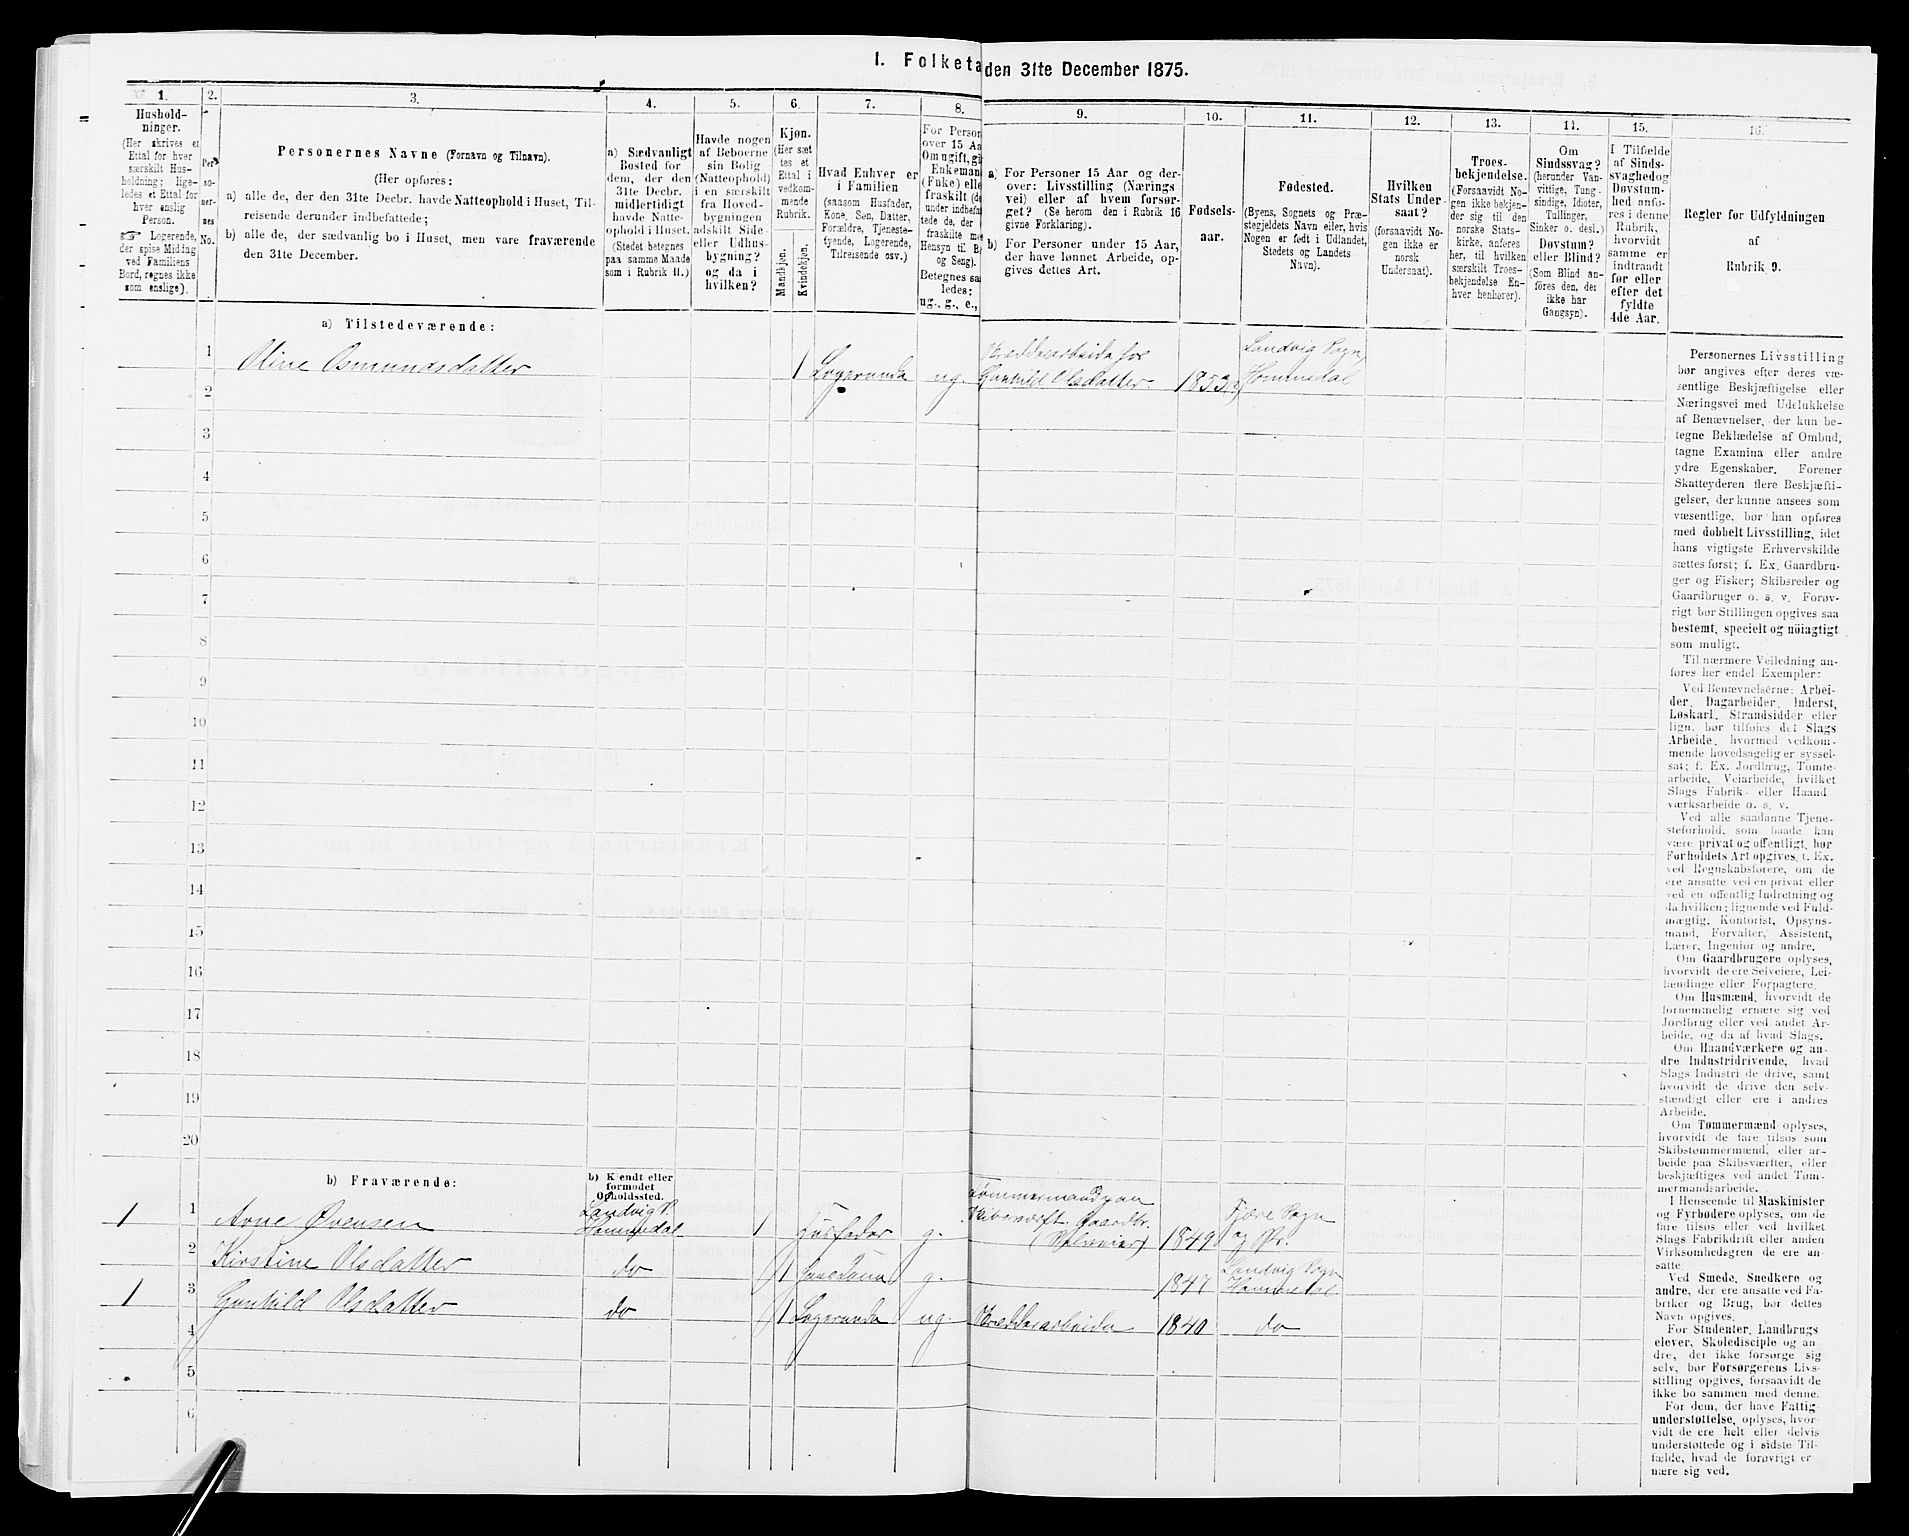 1. Folketa
den 31te December 1875.
1.
2.
3.
4.
5.
6.
7.
8.
9.
10.
11.
12.
13.
14.
15.
16.
Hushold-
ninger.
(Her skrives et
Ettal for hver
særskilt Hus-
holdning; lige-
ledes et Ettal for
hver enslig
Person.
☞ Logerende,
der spise Middag
ved Familiens
Bord, regnes ikke
som enslige).
Per-
so-
ner-
nes
No.
Personernes Navne (Fornavn og Tilnavn).
(Her opføres:
a) alle de, der den 31te Decbr. havde Natteophold i Huset, Til-
reisende derunder indbefattede;
b) alle de, der sædvanlig bo i Huset, men vare fraværende
den 31te December.
a) Sædvanligt
Bosted for
dem, der den
31te Decbr.
midlertidigt
havde Natte-
ophold i Huset.
(Stedet betegnes
paa samme Maade
som i Rubrik 11.)
Havde nogen
af Beboerne
sin Bolig
(Natteophold)
i en særskilt
fra Hoved-
bygningen
adskilt Side-
eller Udhus-
bygning?
og da i
hvilken?
Kjøn.
(Her sæt-
tes et
Ettal i
vedkom-
mende
Rubrik.
Mandkjøn.
Kvindekjøn.
Hvad Enhver er
i Familien
(saasom Husfader,
Kone, Søn, Datter,
Forældre, Tjeneste-
tyende, Logerende,
Tilreisende osv.)
For Person
over 15 Aa
Om ugift, gi
Enkeman
(Enke) elle
fraskilt (de
under indbefat
tede de, der
fraskilte me
Hensyn til B
og Seng).
Betegnes sa
ledes:
ug., g., e.,
a) For Personer 15 Aar og der-
over: Livsstilling (Nærings
vei) eller af hvem forsør-
get? (Se herom den i Rubrik 16
givne Forklaring).
b) For Personer under 15 Aar,
der have lønnet Arbeide, op-
gives dettes Art.
Fødsels-
aar.
Fødested.
(Byens, Sognets og Præ-
stegjeldets Navn eller, hvis
Nogen er født i Udlandet,
Stedets og Landets
Navn).
Hvilken
Stats Under-
saat?
(forsaavidt No-
gen ikke er
norsk
Undersaat).
Troes-
bekjendelse.
(Forsaavidt No-
gen ikke bekjen-
der sig til den
norske Stats-
kirke, anføres
her, til hvilken
særskilt Troes-
bekjendelse En-
hver henhører).
Om
Sindssvag?
(herunder Van-
vittige, Tung-
sindige, Idioter,
Tullinger,
Sinker o. desl.)
Døvstum?
eller Blind?
(Som Blind an-
føres den, der
ikke har
Gangsyn).
I Tilfælde
af Sinds-
svaghed og
Døvstum-
hed anfø-
res i denne
Rubrik,
hvorvidt
samme er
indtraadt
før eller
efter det
fyldte
4de Aar.
Regler for Udfyldningen
af
Rubrik 9.
a) Tilstedeværende:
1 Oline Osmundsdatter 1 Logerende ug. Skrædderarbeide hos Gunhild Olsdatter. 1853 Landvig Sogn Hommedal
2
3
4
5
6
7
8
9
10
11
12
13
14
15
16
17
18
19
20
b) Fraværende:
b) Kjendt eller
formodet
Opholdssted.
1 1 Arne Øvensen Landvig P. Hommedal 1 Husfader g. Tømmermand paa Skibsværft. Gaardbr. (Selveier) 1849 Fjære Sogn og Pr.
2 Kirstine Olsdatter do 1 g. 1847 Landvig Sogn Hommedal
1 3 Gunhild Olsdatter do 1 Logerende ug. Skrædderarbeide 1840 do
4
5
6
Personernes Livsstilling
bør angives efter deres væ-
sentlige Beskjæftigelse eller
Næringsvei med Udelukkelse
af Benævnelser, der kun be-
tegne Beklædelse af Ombud,
tagne Examina eller andre
ydre Egenskaber. Forener
Skatteyderen flere Beskjæfti-
gelser, der kunne ansees som
væsentlige, bør han opføres
med dobbelt Livsstilling, idet
hans vigtigste Erhvervskilde
sættes først; f. Ex. Gaardbru-
ger og Fisker; Skibsreder og
Gaardbruger o. s. v. Forøv-
rigt bør Stillingen opgives saa
bestemt, specielt og nöiagtigt
som muligt.
Til nærmere Veiledning an-
føres her endel Exempler:
Ved Benævnelserne: Arbei-
der, Dagarbeider, Inderst,
Løskarl, Strandsidder eller
lign. bør tilføies det Slags
Arbeide, hvormed vedkom-
mende hovedsagelig er syssel-
sat; f. Ex. Jordbrug, Tomte-
arbeide, Veiarbeide, hvilket
Slags Fabrik- eller Haand
værksarbeide o. s. v.
Ved alle saadanne Tjene-
steforhold, som baade kan
være privat og offentligt, bør
Forholdets Art opgives, t. Ex.
ved Regnskabsførere, om de
ere ansatte ved en privat eller
ved en offentlig Indretning og
da hvilken; lignende ved Fuld-
mægtig, Kontorist, Opsyns-
mand, Forvalter, Assistent,
Lærer, Ingeniør og andre.
Om Gaardbrugere oplyses,
hvorvidt de ere Selveiere, Lei-
lændinge eller Forpagtere.
Om Husmænd, hvorvidt de
fornemmelig ernære sig ved
Jordbrug eller ved andet Ar-
beide, og da af hvad Slags.
Om Haandværkere og an-
dre Industridrivende, hvad
Slags Industri de drive, samt
hvorvidt de drive den selv-
stændigt eller ere i andres
Arbeide.
Om Tømmermænd oplyses,
hvorvidt de fare tilsøs som
Skibstømmermænd, eller ar-
beide paa Skibsværfter, eller
beskjæftiges ved andet Tøm-
mermandsarbeide.
I Henseende til Maskinister
og Fyrbødere oplyses, om de
fare tilsøs eller ved hvilket
Slags Fabrikdrift eller anden
Virksomhedsgren de ere an-
satte.
Ved Smede, Snedkere og
andre, der ere ansatte ved Fa-
briker og Brug, bør dettes
Navn opgives.
For Studenter, Landbrugs-
elever, Skoledisciple og an-
dre, der ikke forsørge sig
selv, bør Forsørgerens Livs-
stilling opgives, forsaavidt de
ikke bo sammen med denne.
For dem, der have Fattig-
understøttelse, oplyses, hvor-
vidt de ere helt eller delvis
understøttede og i sidste Til-
fælde, hvad de forøvrigt er-
nære sig ved.